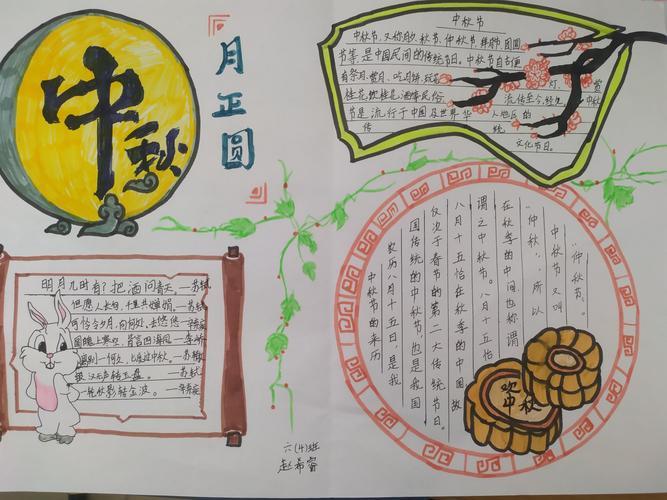 中秋
月正圆
中秋节
中秋节,又称月夕、秋节、仲秋节、拜月节、团圆
节等,是中国民间的传统节日。中秋节自古便
有祭月、赏月、吃月饼、玩花 灯、赏
桂花、饮桂花酒等民俗 流传至今,经久 中秋
节是流行于中国及世界华 人地区的
传 统
文化节日。
明月几时有?把酒问青天—苏轼
但愿人长久,千里共婵娟。—苏轼
可怜今夕月,向何处、去悠悠—辛弃疾
圆魄上寒空,皆言四海同—李峤
别一何久,七度过中秋。—苏辙
银汉无声转玉盘。—苏轼
一轮秋影转金波。—辛弃疾
中秋节的来历
农历八月十五日,是我
国传统的中秋节,也是我国
仅次于春节的第二大传统节日。
八月十五恰在秋季的中国,故
谓之中秋节。八月十五恰
在秋季的中间也称谓
"仲秋",所以
中秋节又叫
"仲秋节。
中秋
六(4)班
赵希睿